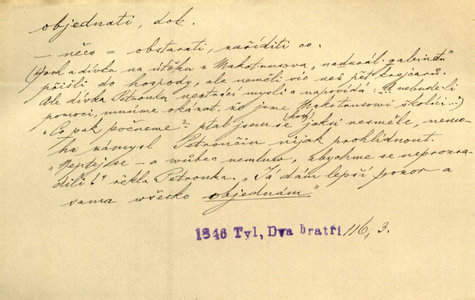 objednati, dok.
— něco = obstarati, naříditi co.
(Hoch a dívka na útěku z Makotrusova „naturál. gabinetu"
přišli do hospody, ale neměli víc než pět krejcarů.
Ale dívka Petronka neztrácí mysli a napovídá: „A nebude-li
pomoci, musíme ukázat, že jsme Makotrusovi školáci.":)
„Co pak počneme?" ptal jsem se hochu jaksi nesměle, nemo-
ha zámysl Petrončin nijak prohlídnout.
„Neptej se — a vůbec nemluv, abychme se neprozra-
dili!" řekla Petronka. „Já dám lepší pozor a
sama všecko objednám."
1846 Tyl, Dva bratři 116, 3.